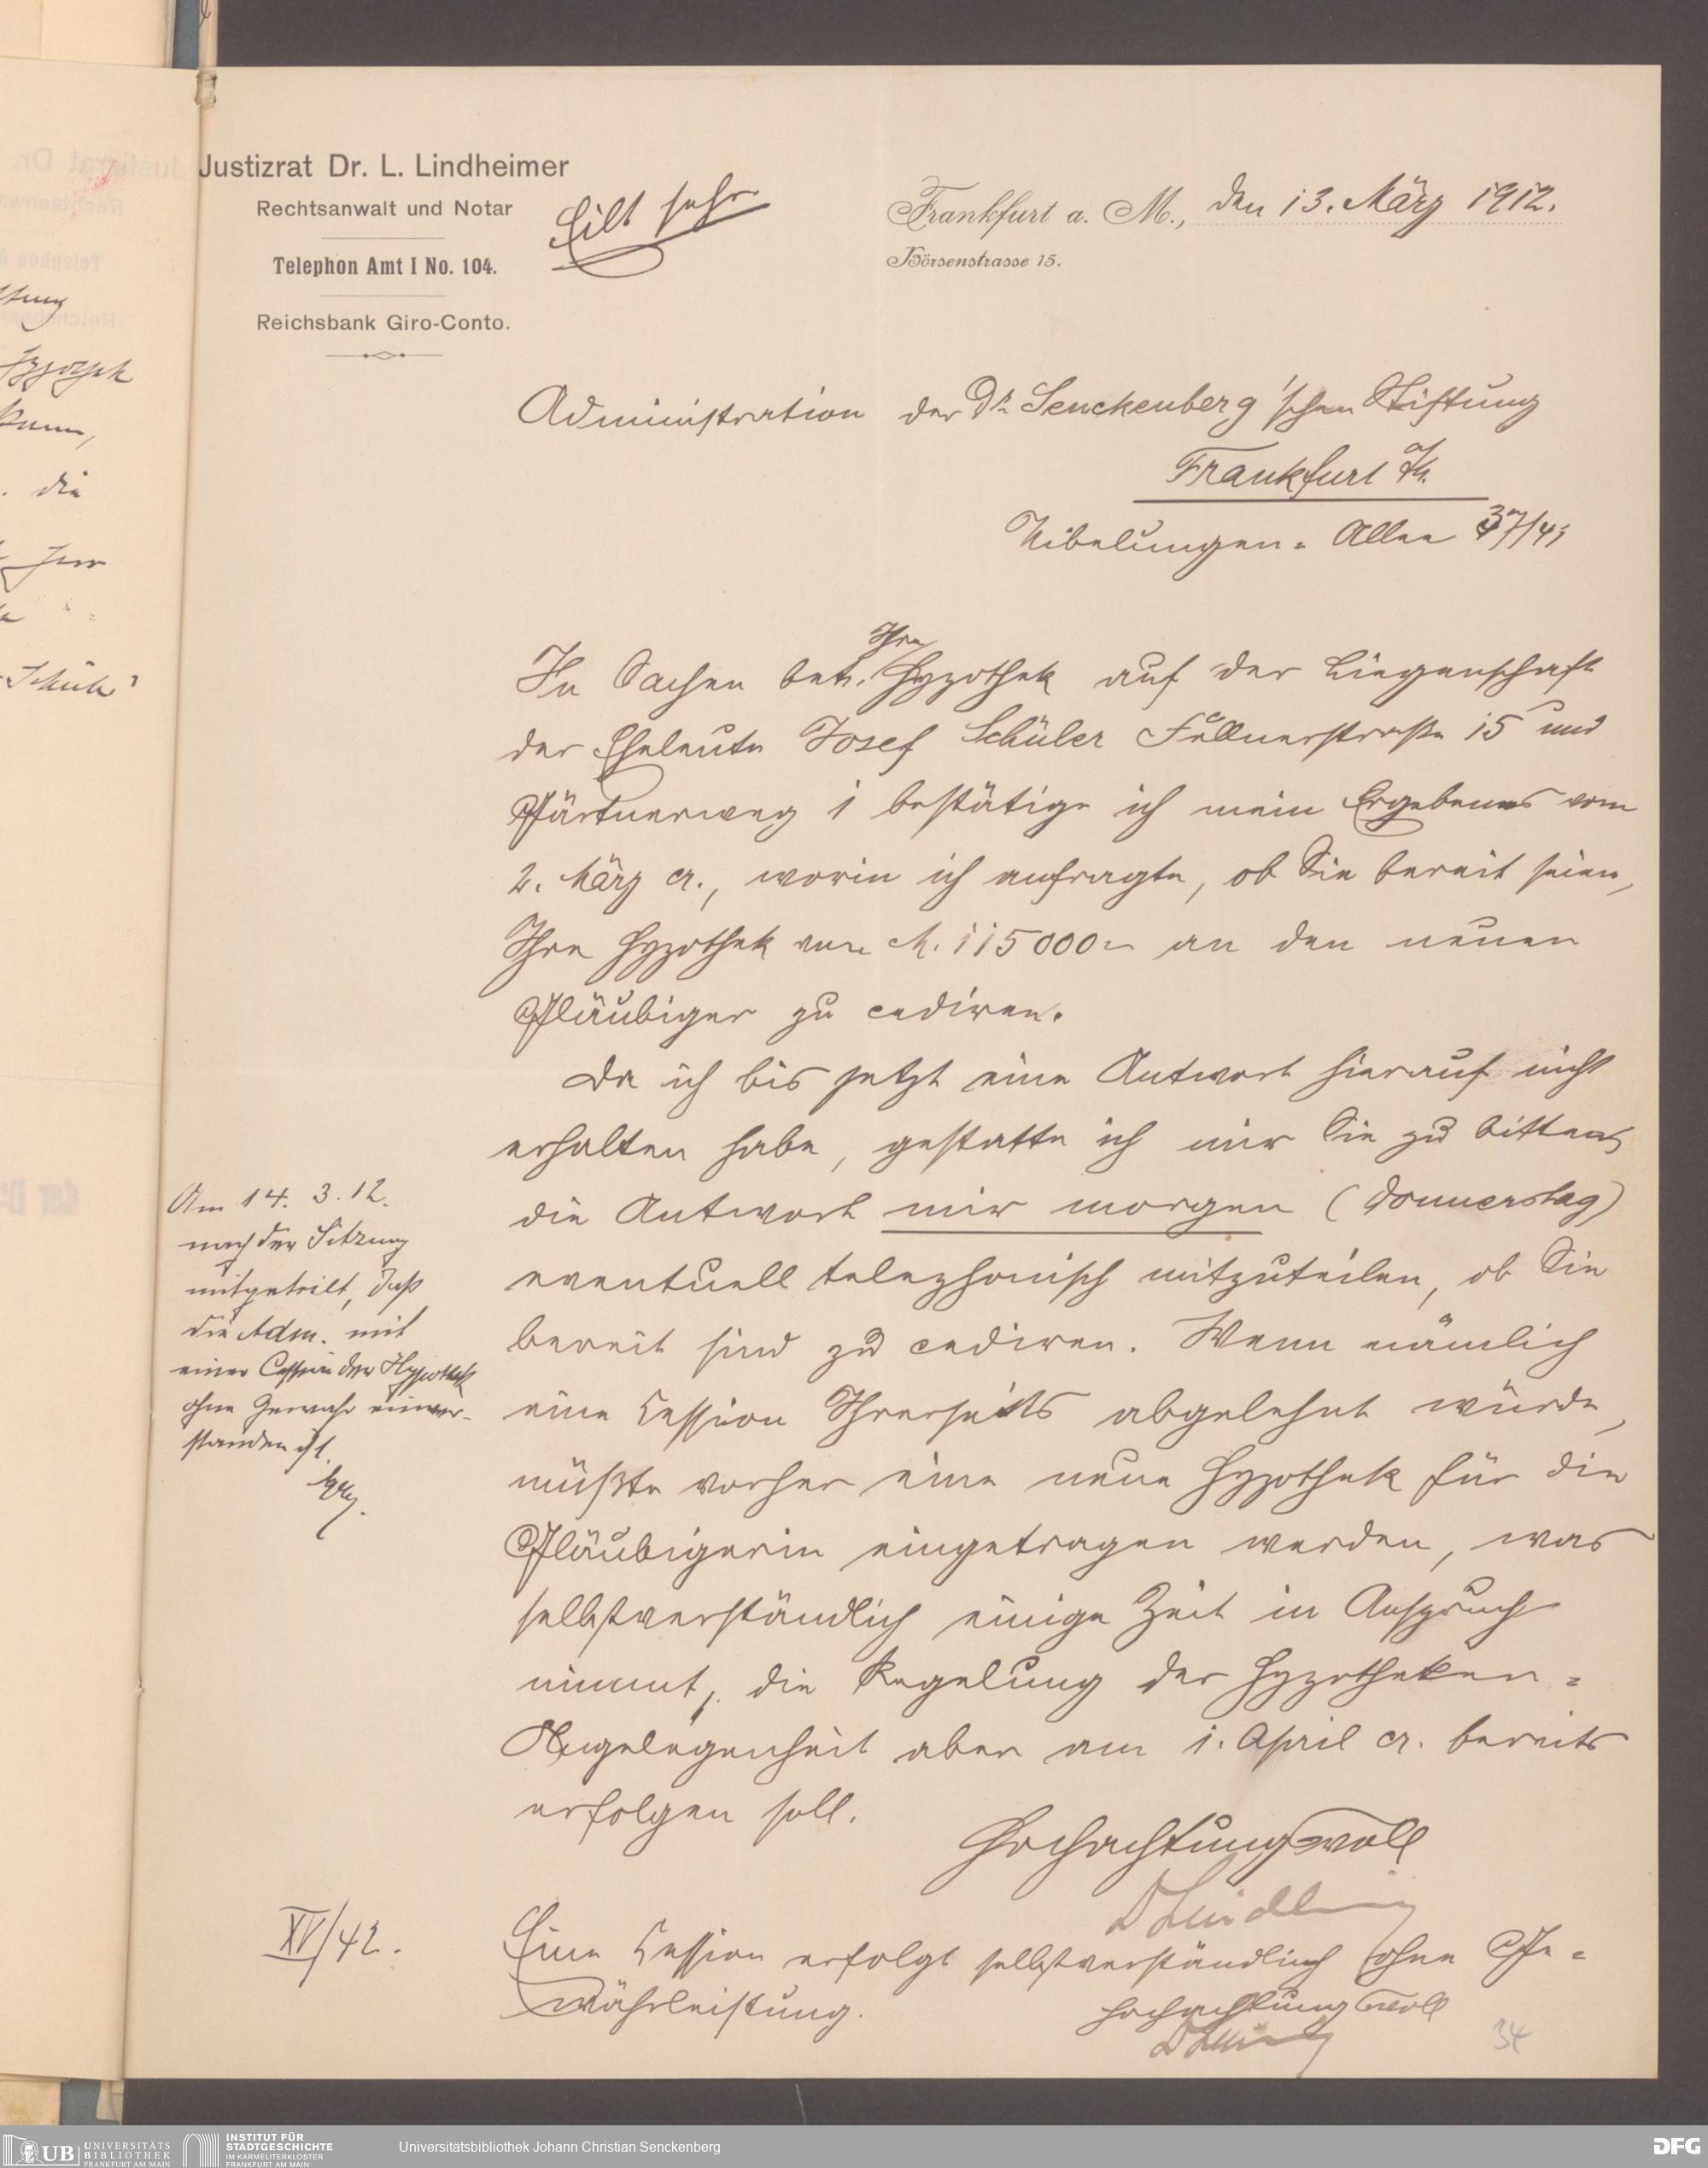 Justizrat Dr. L. Lindheimer
Rechtsanwalt und Notar
Telephon Amt I No. 104.
Reichsbank Giro-Conto.
Eilt sehr
Frankfurt a. M., den 13. März 1912.
Börsenstrasse 15.
Administration der Dr. Senckenberg'schen Stiftung
Frankfurt a/M.
Nibelungen-Allee 37/41
Ihre
In Sachen betr. Hypothek auf der Liegenschaft
der Eheleute Josef Schüler Fellnerstraße 15 und
Gärtnerweg 1 bestätige ich mein Ergebenes vom
2. März cr., worin ich anfragte, ob Sie bereit seien,
Ihre Hypothek von M. 115000- an den neuen
Gläubiger zu cediren.
Da ich bis jetzt eine Antwort hierauf nicht
erhalten habe, gestatte ich mir Sie zu bitten,
die Antwort mir morgen (Donnerstag)
eventuell telephonisch mitzuteilen, ob Sie
bereit sind zu cediren. Wenn nämlich
eine Cession Ihrerseits abgelehnt würde,
müßte vorher eine neue Hypothek für die
Gläubigerin eingetragen werden, was
selbstverständlich einige Zeit in Anspruch
nimmt, die Regelung der Hypotheken-
Angelegenheit aber am 1. April cr. bereits
erfolgen soll.
Hochachtungsvoll
Eine Cession erfolgt selbstverständlich ohne Ge-
währleistung.
Hochachtungsvoll
Am 14. 3. 12.
nach der Sitzung
mitgeteilt, daß
die Adm. mit
einer Cession der Hypothek
ohne Gewähr einver-
standen ist.
XV/42.
34
die
Schüle
UB UNIVERSITÄTS
BIBLIOTHEK
FRANKFURT AM MAIN
INSTITUT FÜR
STADTGESCHICHTE
IM KARMELITERKLOSTER
FRANKFURT AM MAIN
Universitätsbibliothek Johann Christian Senckenberg
DFG